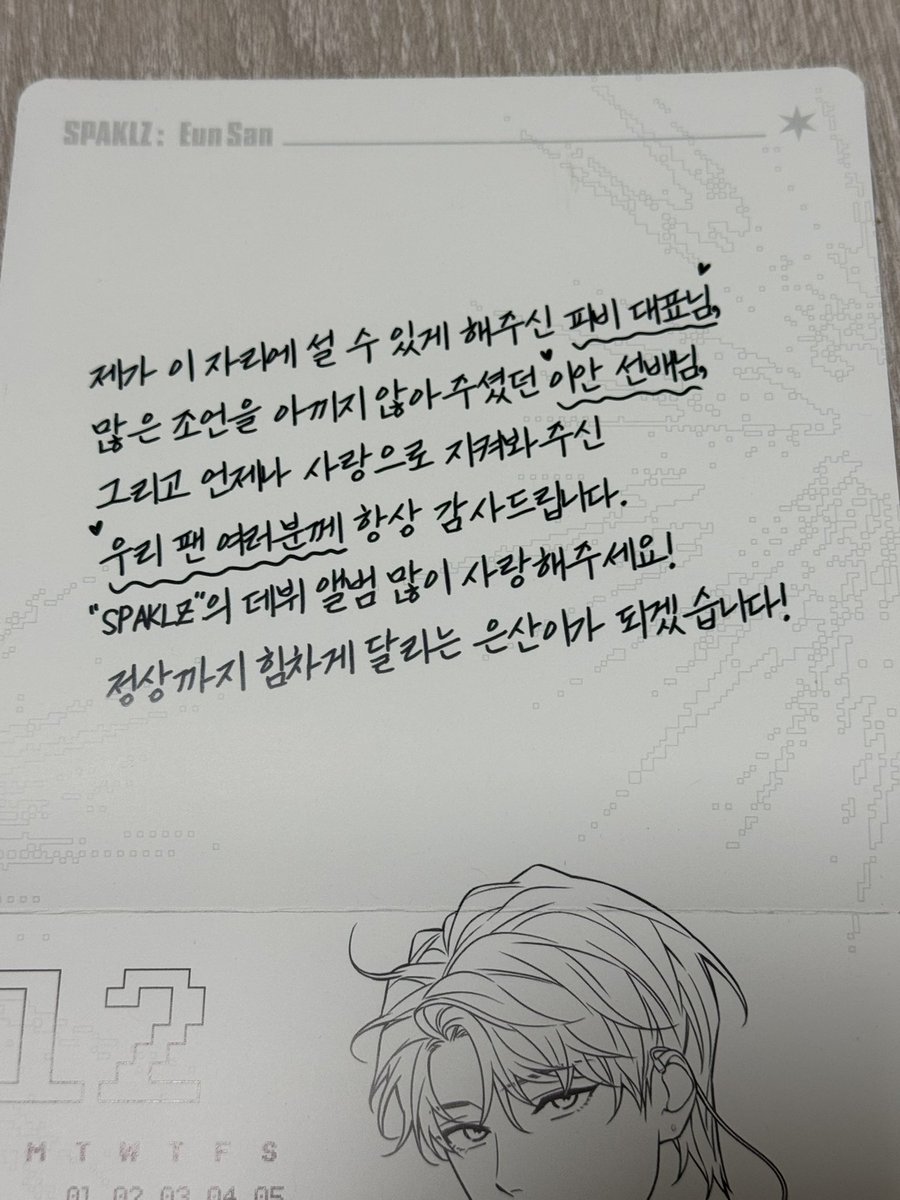 SPAKLZ: Eun San
제가 이 자리에 설 수 있게 해주신 파비 대표님,
많은 조언을 아끼지 않아 주셨던 이안 선배님,
그리고 언제나 사랑으로 지켜봐 주신
우리 팬 여러분께 항상 감사드립니다.
"SPAKLZ"의 데뷔 앨범 많이 사랑해주세요!
정상까지 힘차게 달리는 은산이가 되겠습니다!
12
M T W T F S
01 02 03 04 05